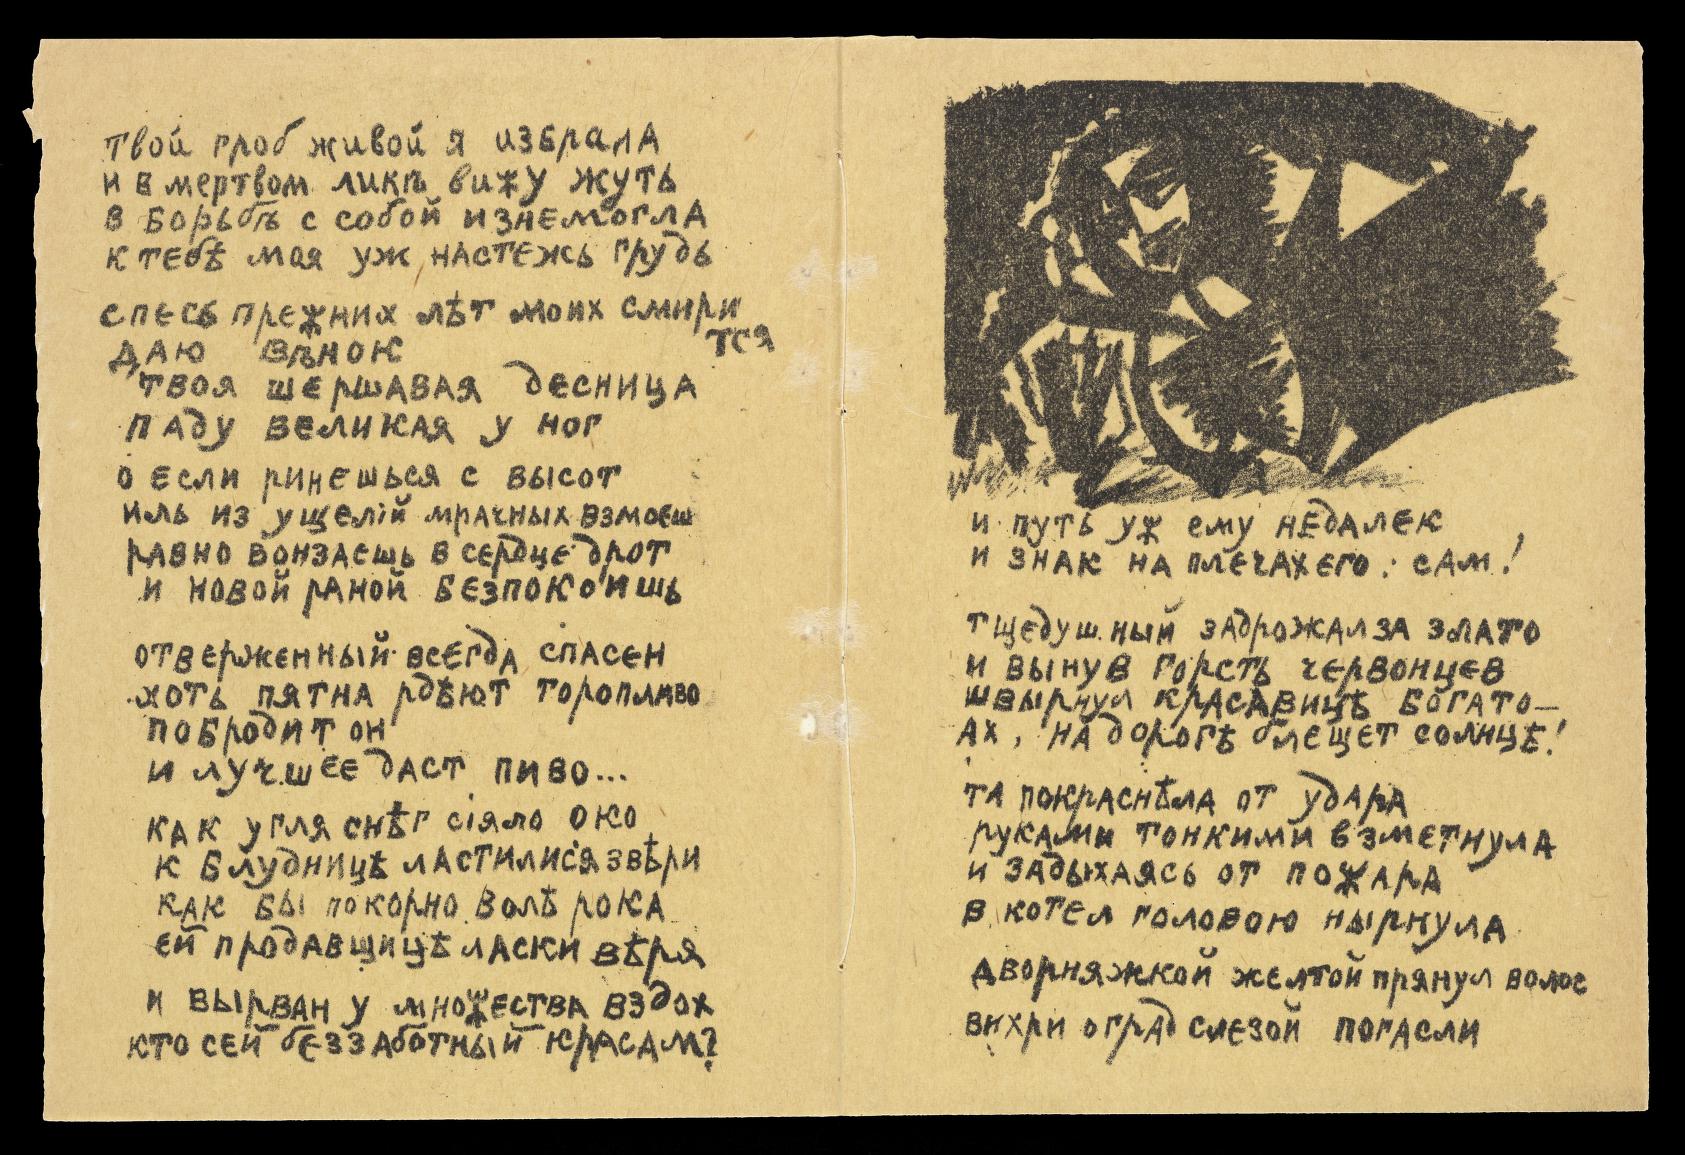 твой гроб живой я избрала
и в мертвом ликѣ вижу жуть
в борьбѣ с собой изнемогла
к тебѣ моя уж настежь грудь
спесь прежних лѣт моих смири
тся
даю вѣнок
твоя шершавая десница
паду великая у ног
о если ринешься с высот
иль из ущелій мрачных взмоеш
равно вонзаешь в сердце дрот
и новой раной безпокоишь
отверженный всегда спасен
хоть пятна рдѣют торопливо
побродит он
и лучшее даст пиво...
как угля снѣг сіяло око
к блудницѣ ластилися звѣри
как бы покорно волѣ рока
ей продавщицѣ ласки вѣря
и вырван у множества вздох
кто сей беззаботный красам?
и путь уж ему недалек
и знак на плечах его: сам!
тщедушный задрожал за злато
и вынув горсть червонцев
швырнул красавицѣ богато—
Ах, на дорогѣ блещет солнцѣ!
та покраснѣла от удара
руками тонкими взметнула
и задыхаясь от пожара
в котел головою нырнула
дворняжкой желтой прянул волос
вихри оград слезой погасли